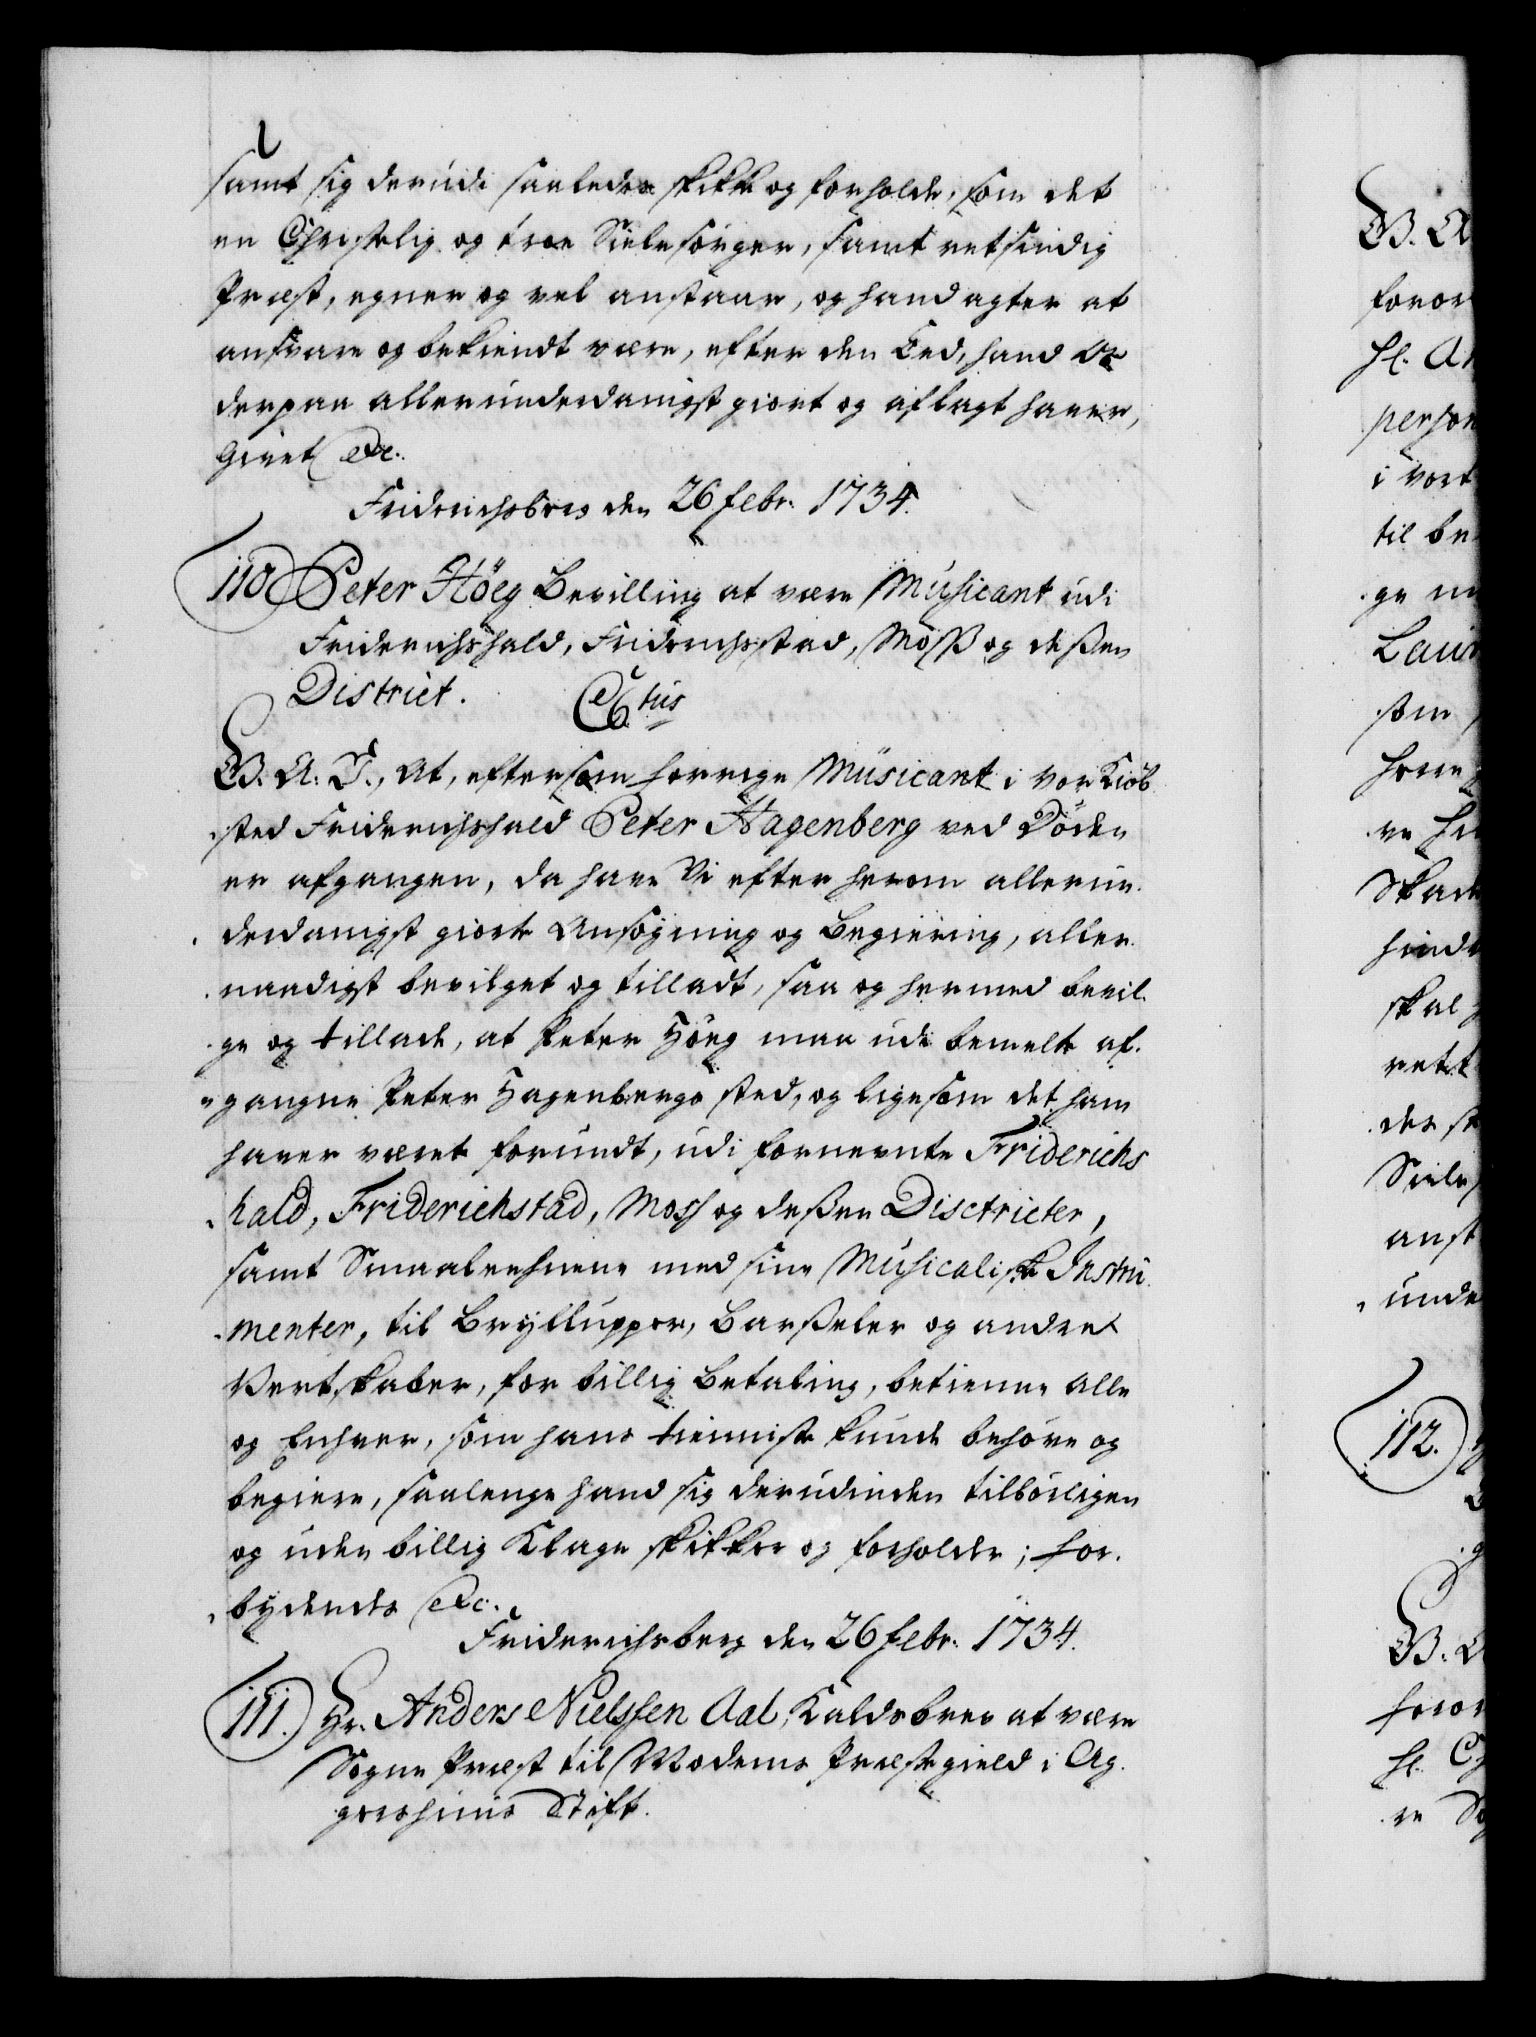 samt sig derudi saaledes skikke og forholde, som det
en Christelig og troe Siælesörger, samt retsindig
Præst, egner og vel anstaar, og hand agter at
ansvare og bekiendt være, efter den Eed, hand Os
derpaa allerunderdanigst giort og aflagt haver,
Givet etc.
Friderichsberg den 26 febr. 1734.
110 Peter Höeg Bevilling at være Musicant udi
Friderichshald, Friderichsstad, Moss og dessen
District. C 6tus
G. A. V., At, eftersom forrige Musicant i vor Kiöb
sted Friderichshald Peter Hagenberg ved Döden
er afgangen, da have Vi efter herom allerun
derdanigst giorte Ansögning og Begiering, aller
naadigst bevilget og tilladt, saa og hermed bevil
ge og tillade, at Peter Höeg maa udi bemelte af
gangne Peter Hagenbergs sted, og ligesom det ham
haver været forundt, udi fornevnte Friderichs
hald, Friderichstad, Moss og dessen Disctricter,
samt Smaalensene med sine Musicaliske Instru
menter, til Brylluper, Barsseler og andre
Vertskaber, for billig Betaling, betienne Alle
og Enhver, som hans tienniste kunde behöve og
begiere, saalenge hand sig derudinden tilbörligen
og uden billig Klage skikker og forholder; For
bydendes etc.
Friderichsberg den 26 febr. 1734.
111. Hr. Anders Nielssen Aal, Kaldsbrev at være
Sogne Præst til Modems Præstegield i Ag
gershuus Stift.
G. A
foror
hl. An
person
i vort
til be
ge
Laur
som
ve
Skade
hind
skal
rett
des
Siele
anst
unde
112.
G.
foror
hl. C
re